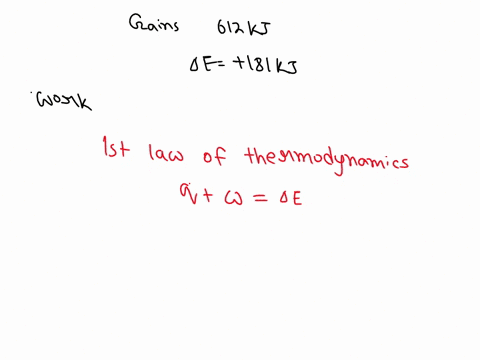 Gains 612 kJ
ΔE = +181 kJ
Work
1st law of thermodynamics
q + w = ΔE